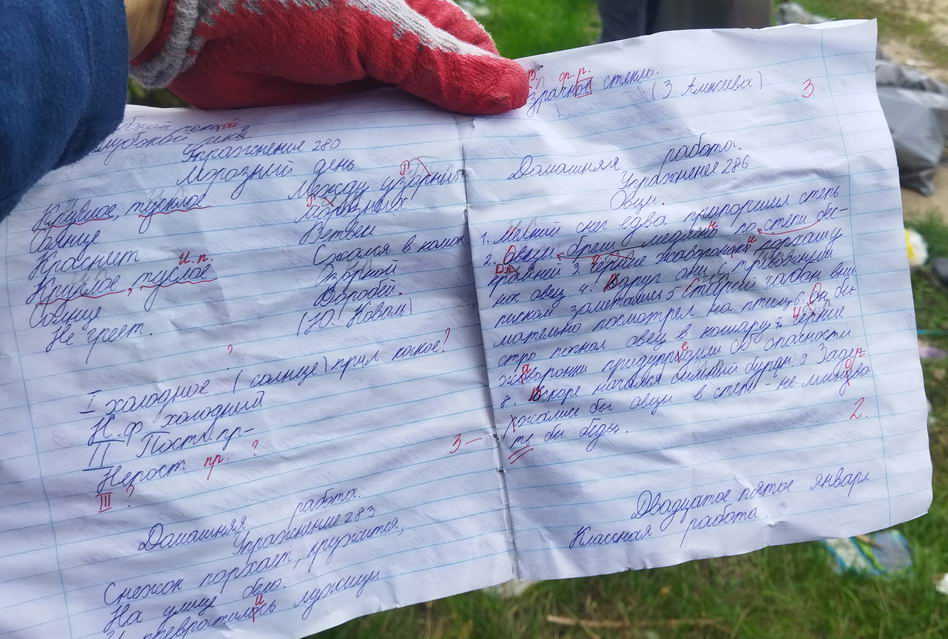 Упражнение 280
Морозный день
Круглое, тусклое
Солнце
Краснеет
и.п.
Круглое, тусклое
Солнце
Не греет.
Между узорных
Морозных
Ветвей
Сжался в комок
Зоркой
Воробей.
(Ю. Коваль)
?
I холодное (солнце) прил какое?
Н.ф холодный
II Пост. пр-
Непост пр. ?
III ?
3-
Домашняя работа.
Упражнение 283
Снежок порхает, кружится,
На улице бело.
И превратились лужицы
р. ф.р.
зрачное стекло.
(З. Алексева)
3
Домашняя работа.
Упражнение 286
Овцы.
1. Мелкий снег едва припорошил степь
2. Овцы брели медлено по степи бес-
крайней 3. Черние жаворонки порхали
ниж овец 4. Вдруг они с тревожним
писком заметались 5 Старый чабан вни
мательно посмотрел на птиц 6. Он бы
стро погнал овец в кошару 7. Черние
жаворонки придупридили об опасности
8. Вскоре начался сильный буран. 9 Задер
жались бы овцы в степи - не миновать
бы беды.
2.
Двадцатое пятое января
Классная работа